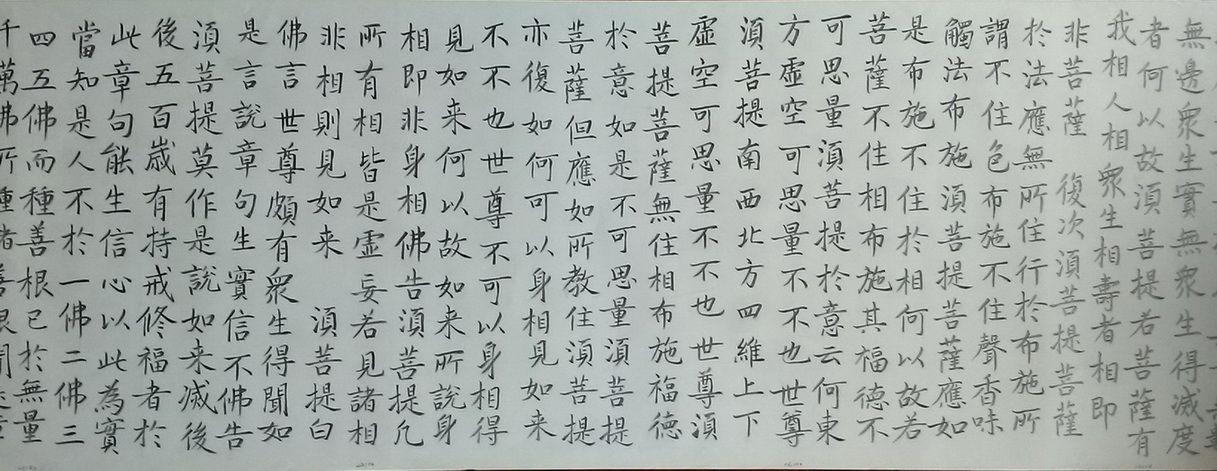 無邊眾生實無眾生得滅度
者何以故須菩提若菩薩有
我相人相眾生相壽者相即
非菩薩 復次須菩提菩薩
於法應無所住行於布施所
謂不住色布施不住聲香味
觸法布施須菩提菩薩應如
是布施不住於相何以故若
菩薩不住相布施其福德不
可思量須菩提於意云何東
方虛空可思量不不也世尊
須菩提南西北方四維上下
虛空可思量不不也世尊須
菩提菩薩無住相布施福德
於意如是不可思量須菩提
菩薩但應如所教住須菩提
亦復如何可以身相見如来
不不也世尊不可以身相得
見如来何以故如来所說身
相即非身相佛告須菩提凡
所有相皆是虛妄若見諸相
非相則見如来 須菩提白
佛言世尊頗有眾生得聞如
是言說章句生實信不佛告
須菩提莫作是說如来滅後
後五百歲有持戒修福者於
此章句能生信心以此為實
當知是人不於一佛二佛三
四五佛而種善根已於無量
千萬佛所種諸善根聞